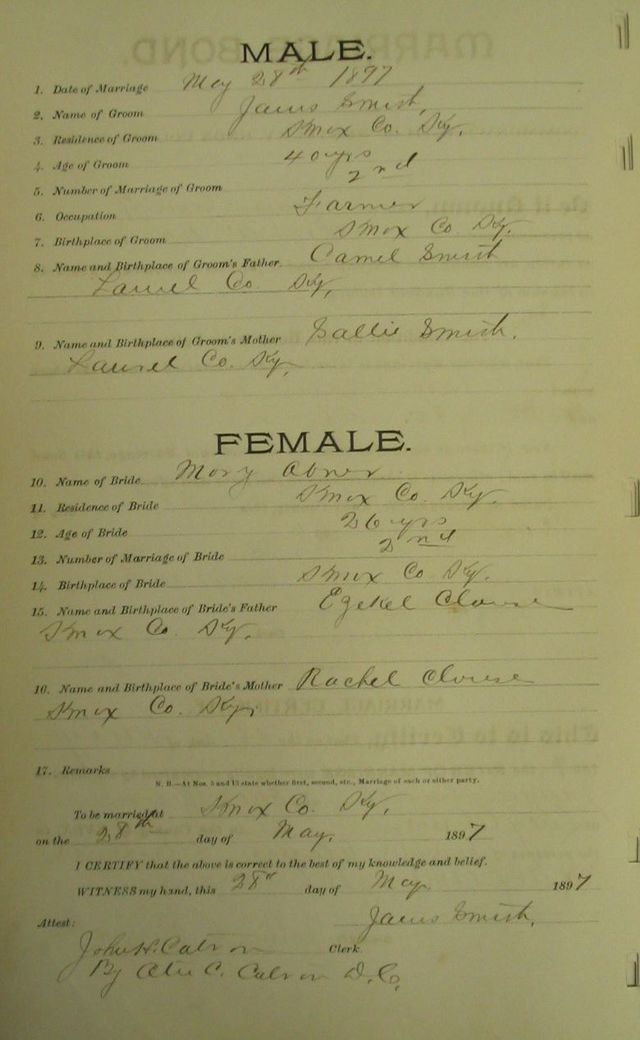 MALE.
1. Date of Marriage May 28th 1897
2. Name of Groom James Smith,
3. Residence of Groom Knox Co. Ky.
4. Age of Groom 40 yrs
5. Number of Marriage of Groom 2nd
6. Occupation Farmer
7. Birthplace of Groom Knox Co Ky.
8. Name and Birthplace of Groom's Father Smith
Laurel Co. Ky,
9. Name and Birthplace of Groom's Mother Sallie Smith.
Laurel Co. Ky,
FEMALE.
10. Name of Bride Mary Abner
11. Residence of Bride Knox Co. Ky.
12. Age of Bride 26 yrs
13. Number of Marriage of Bride 2nd
14. Birthplace of Bride Knox Co Ky.
15. Name and Birthplace of Bride's Father Ezekel Clouse
Knox Co. Ky.
16. Name and Birthplace of Bride's Mother Rachel Clouse
Knox Co. Ky,
17. Remarks
N. B.—At Nos. 5 and 13 state whether first, second, etc., Marriage of each or either party.
To be married at Knox Co. Ky.
on the 28th day of May, 1897
I CERTIFY that the above is correct to the best of my knowledge and belief.
WITNESS my hand, this 28th day of May 1897
James Smith,
Attest:
John H. Catron Clerk
By C. Catron D.C.